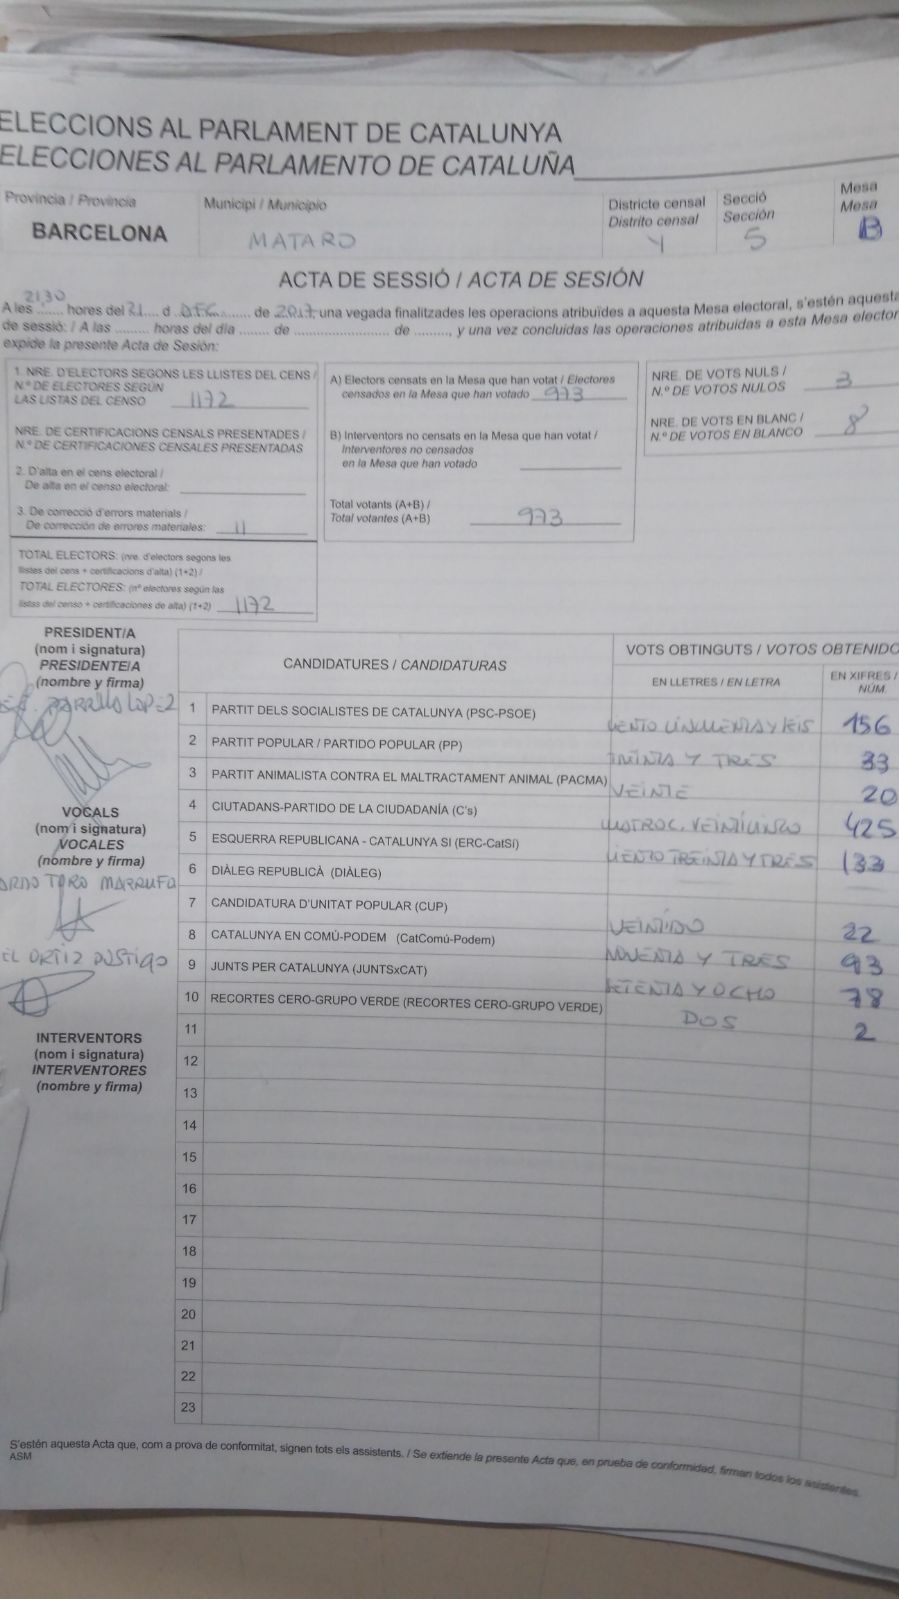 ELECCIONS AL PARLAMENT DE CATALUNYA
ELECCIONES AL PARLAMENTO DE CATALUÑA
Provincia / Provincia
BARCELONA
Municipi / Municipio
MATARO
Districte censal
Distrito censal
4
Secció
Sección
5
Mesa
Mesa
B
ACTA DE SESSIÓ / ACTA DE SESIÓN
A les 21,30 hores del 21 d DEC. de 2017, una vegada finalitzades les operacions atribuïdes a aquesta Mesa electoral, s'estén aquesta
de sessió: / A las ......... horas del día ....... de ...................... de ........, y una vez concluidas las operaciones atribuidas a esta Mesa elector
expide la presente Acta de Sesión:
1. NRE. D'ELECTORS SEGONS LES LLISTES DEL CENS /
N.º DE ELECTORES SEGÚN
LAS LISTAS DEL CENSO 1172
NRE. DE CERTIFICACIONS CENSALS PRESENTADES /
N.º DE CERTIFICACIONES CENSALES PRESENTADAS
2. D'alta en el cens electoral /
De alta en el censo electoral:
3. De correcció d'errors materials /
De corrección de errores materiales: 11
TOTAL ELECTORS: (nre. d'electors segons les
llistes del cens + certificacions d'alta) (1+2) /
TOTAL ELECTORES: (nº electores según las
listas del censo + certificaciones de alta) (1+2) 1172
A) Electors censats en la Mesa que han votat / Electores
censados en la Mesa que han votado 973
B) Interventors no censats en la Mesa que han votat /
Interventores no censados
en la Mesa que han votado
Total votants (A+B) /
Total votantes (A+B) 973
NRE. DE VOTS NULS /
N.º DE VOTOS NULOS 3
NRE. DE VOTS EN BLANC /
N.º DE VOTOS EN BLANCO 8
PRESIDENT/A
(nom i signatura)
PRESIDENTE/A
(nombre y firma)
LOPEZ
VOCALS
(nom i signatura)
VOCALES
(nombre y firma)
TORO MARRUFO
EL ORTIZ
INTERVENTORS
(nom i signatura)
INTERVENTORES
(nombre y firma)
CANDIDATURES / CANDIDATURAS
VOTS OBTINGUTS / VOTOS OBTENIDO
EN LLETRES / EN LETRA
EN XIFRES /
NÚM.
1 PARTIT DELS SOCIALISTES DE CATALUNYA (PSC-PSOE) CIENTO CINCUENTA Y SEIS 156
2 PARTIT POPULAR / PARTIDO POPULAR (PP) TREINTA Y TRES 33
3 PARTIT ANIMALISTA CONTRA EL MALTRACTAMENT ANIMAL (PACMA) VEINTE 20
4 CIUTADANS-PARTIDO DE LA CIUDADANÍA (C's) CUATROC. VEINTICINCO 425
5 ESQUERRA REPUBLICANA - CATALUNYA SI (ERC-CatSí) CIENTO TREINTA Y TRES 133
6 DIÀLEG REPUBLICÀ (DIÀLEG)
7 CANDIDATURA D'UNITAT POPULAR (CUP) VEINTIDO 22
8 CATALUNYA EN COMÚ-PODEM (CatComú-Podem) NOVENTA Y TRES 93
9 JUNTS PER CATALUNYA (JUNTSxCAT) SETENTA Y OCHO 78
10 RECORTES CERO-GRUPO VERDE (RECORTES CERO-GRUPO VERDE) DOS 2
11
12
13
14
15
16
17
18
19
20
21
22
23
S'estén aquesta Acta que, com a prova de conformitat, signen tots els assistents. / Se extiende la presente Acta que, en prueba de conformidad, firman todos los asistentes.
ASM